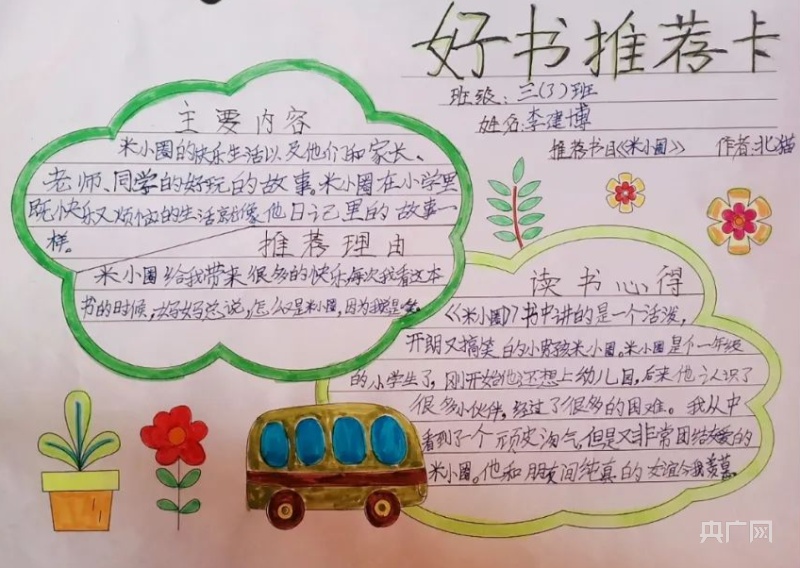 好书推荐卡
班级：三(3)班
姓名：李建博
推荐书目《米小圈》 作者：北猫
主要内容
米小圈的快乐生活以及他们和家长、
老师、同学的好玩的故事。米小圈在小学里
既快乐又烦恼的生活就像他日记里的故事一
样。
推荐理由
米小圈给我带来很多的快乐每次我看这本
书的时候，妈妈总说，怎么又是米小圈，因为我总是笑
读书心得
《米小圈》书中讲的是一个活泼，
开朗又搞笑的小男孩米小圈。米小圈是个一年级
的小学生了，刚开始他还想上幼儿园，后来他认识了
很多小伙伴，经过了很多的困难。我从中
看到了一个顽皮淘气，但是又非常团结友爱的
米小圈。他和朋友间纯真的友谊令我羡慕
央广网